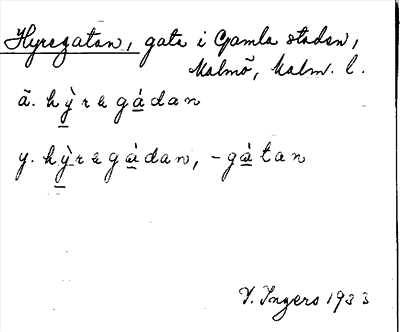 Hyregatan, gata i Gamla staden,
Malmö, Malm. l.
ä. hỳ̱rɛgá̱dan
y. hỳ̱rɛgá̱dan, -gá̱tan
V. Ingers 1933